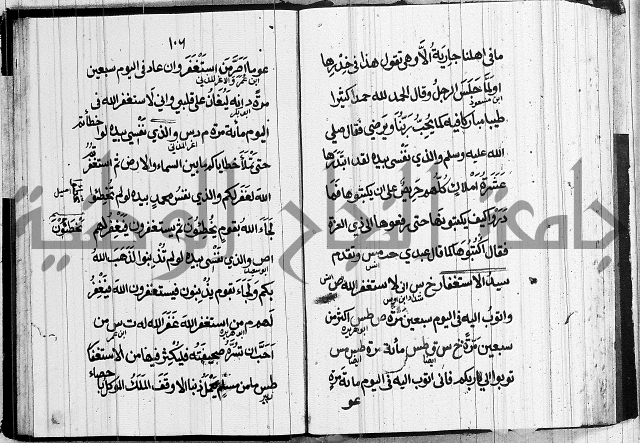 ما في اهلنا جارية الا وهي تقول هذا في خدرها
اولما جلس الرجل وقال الحمد لله حمدا كثيرا
ابن مسعود
طيبا مباركا فيه كما يحب ربنا ويرضى فقال صلى
الله عليه وسلم والذي نفسي بيده لقد ابتدرها
عشرة املاك كلهم حريص على ان يكتبوها فما
دروا كيف يكتبونها حتى رفعوها الى ذي العزة
فقال اكتبوها كما قال عبدي
انس
سيد الاستغفار خ س اني لاستغفر الله
شداد بن اوس
واتوب اليه في اليوم سبعين مرة ص طس اكثر من
ابو هريرة
سبعين مرة خ س ق طس مائة مرة طس مس
توبوا الى ربكم فاني اتوب اليه في اليوم مائة مرة
عو
١٠٦
عو ما اصر من استغفر وان عاد في اليوم سبعين
مرة د انه ليغان على قلبي واني لاستغفر الله في
اليوم مائة مرة م د س والذي نفسي بيده لو
خطاتم
حتى تملأ خطاياكم ما بين السماء والارض ثم استغفرتم
الله لغفر لكم والذي نفس محمد بيده لو لم تخطئوا
لجاء الله بقوم يخطئون ثم يستغفرون فيغفر لهم
اص والذي نفسي بيده لو لم تذنبوا لذهب الله
بكم ولجاء بقوم يذنبون فيستغفرون الله فيغفر
لهم م من استغفر الله غفر الله له ت س من
احب ان تسره صحيفته فليكثر فيها من الاستغفار
طس ما من مسلم يعمل ذنبا الا وقف الملك الموكل
جامعة النجاح الوطنية